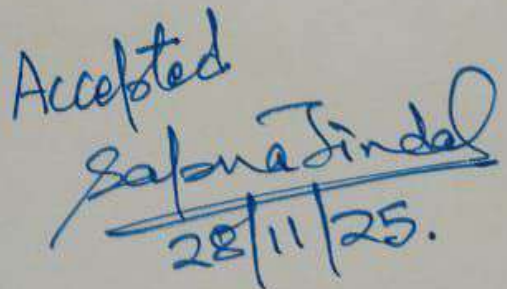 Accepted
Sapna Jindal
28/11/25.